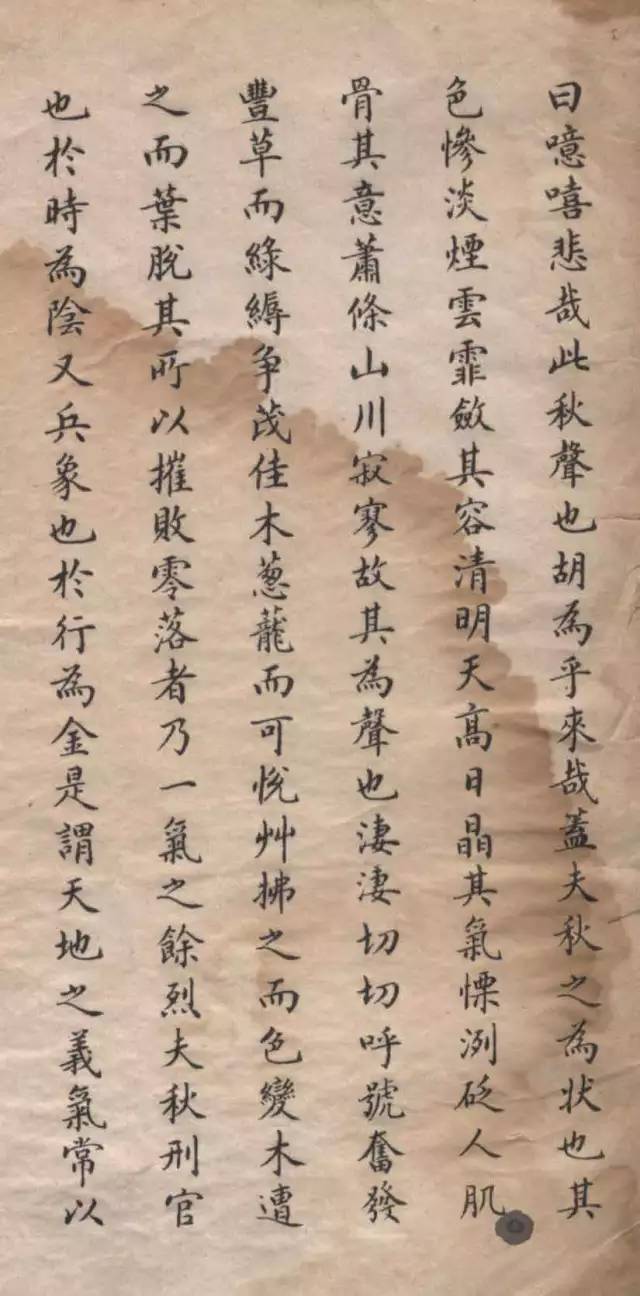 曰噫嘻悲哉此秋聲也胡為乎來哉蓋夫秋之為状也其
色惨淡煙雲霏斂其容清明天高日晶其氣慄洌砭人肌
骨其意蕭條山川寂寥故其為聲也淒淒切切呼號奮發
豐草而綠縟争茂佳木蔥蘢而可悅艸拂之而色變木遭
之而葉脫其所以摧敗零落者乃一氣之餘烈夫秋刑官
也於時為陰又兵象也於行為金是謂天地之義氣常以